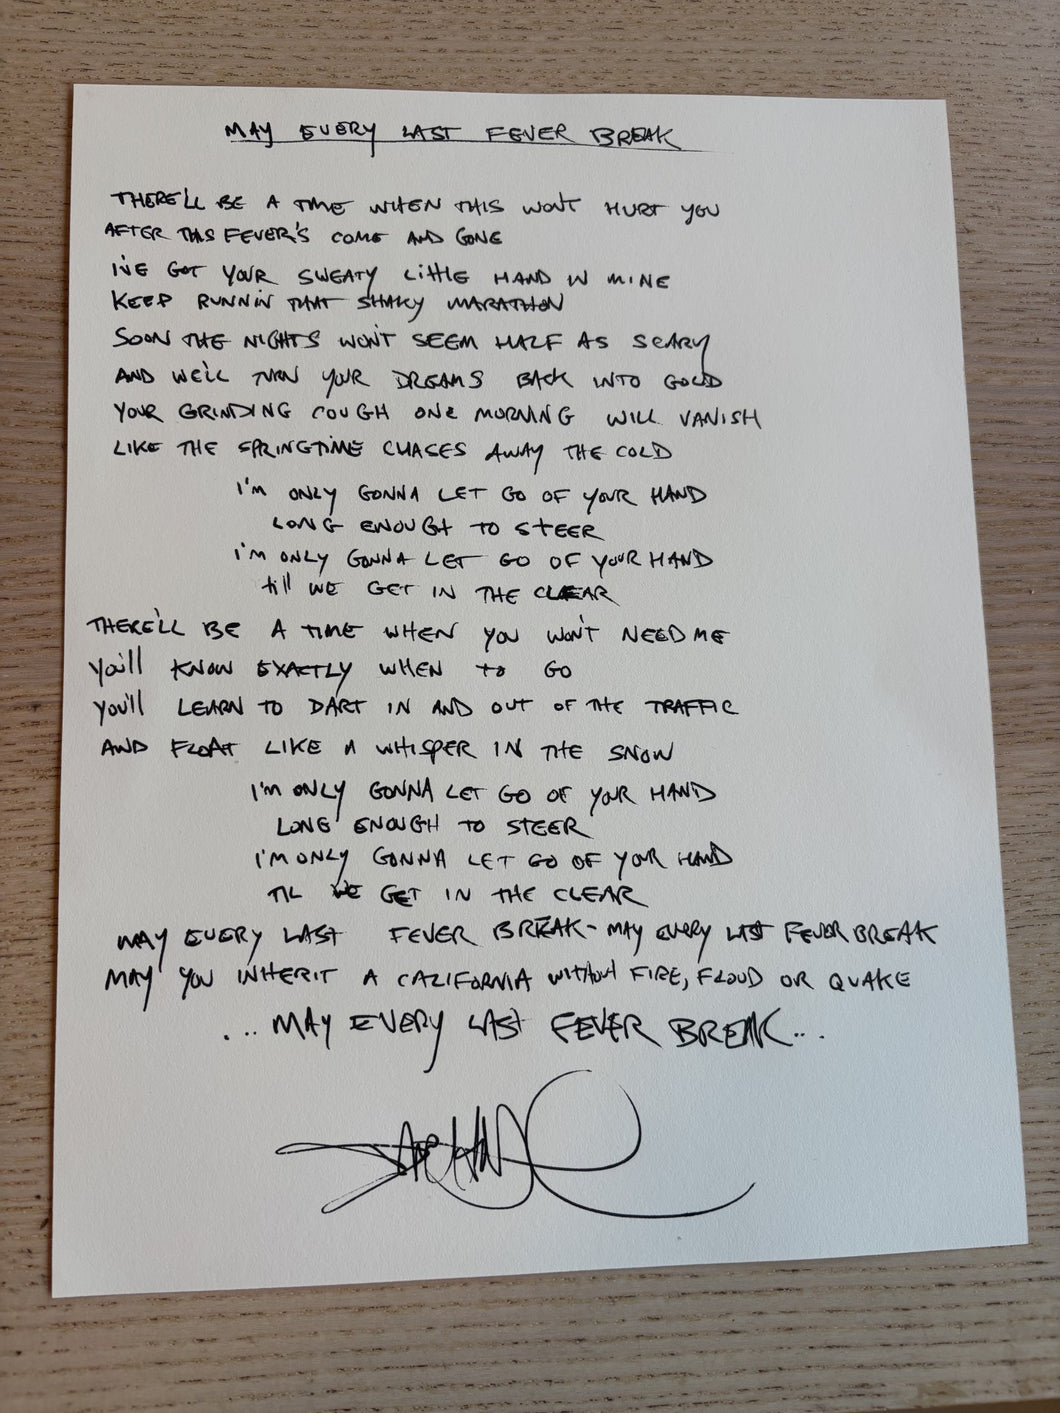 MAY EVERY LAST FEVER BREAK
THERE'LL BE A TIME WHEN THIS WON'T HURT YOU
AFTER THIS FEVER'S COME AND GONE
I'VE GOT YOUR SWEATY LITTLE HAND IN MINE
KEEP RUNNIN THAT SHAKY MARATHON
SOON THE NIGHTS WON'T SEEM HALF AS SCARY
AND WE'LL TURN YOUR DREAMS BACK INTO GOLD
YOUR GRINDING COUGH ONE MORNING WILL VANISH
LIKE THE SPRINGTIME CHASES AWAY THE COLD
I'M ONLY GONNA LET GO OF YOUR HAND
LONG ENOUGH TO STEER
I'M ONLY GONNA LET GO OF YOUR HAND
till WE GET IN THE CLEAR
THERE'LL BE A TIME WHEN YOU WON'T NEED ME
YOU'll KNOW EXACTLY WHEN TO GO
YOU'll LEARN TO DART IN AND OUT OF THE TRAFFIC
AND FLOAT LIKE A WHISPER IN THE SNOW
I'M ONLY GONNA LET GO OF YOUR HAND
LONG ENOUGH TO STEER
I'M ONLY GONNA LET GO OF YOUR HAND
TIL WE GET IN THE CLEAR
MAY EVERY LAST FEVER BREAK - MAY EVERY LAST FEVER BREAK
MAY YOU INHERIT A CALIFORNIA WITHOUT FIRE, FLOUD OR QUAKE
... MAY EVERY LAST FEVER BREAK...